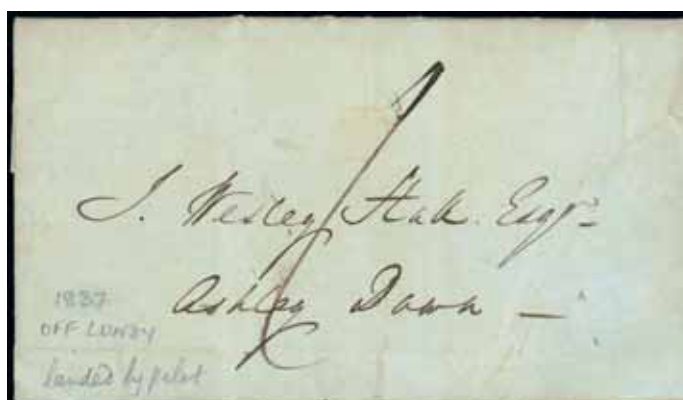 J. Wesley Hall. Esqr
Ashley Down —
1837
OFF LUNDY
landed by pilot